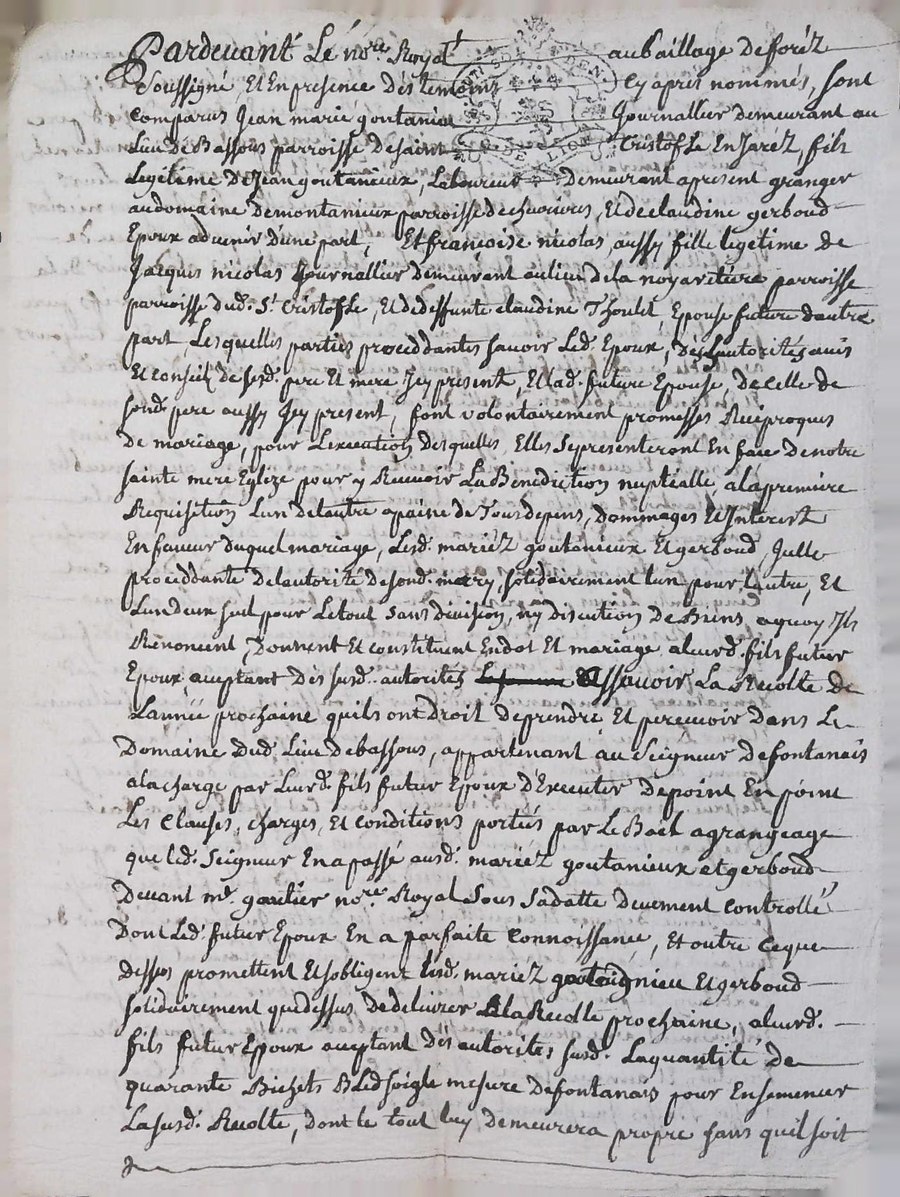 Pardevant Le no.re Royal au baillage de foréz
Soussigné, Et En presence des temoins Cy aprés nommés, sont
comparus Jean marie goutanieu Journallier demeurant au
Lieu de Bassous parroisse de saint Cristofle En Jaréz, fils
Legetime de Jean goutanieux, Laboureur demeurant apresent granger
au domaine de montanieux parroisse de chevrieres, Et de claudine gerboud
Epoux advenir d'une part, Et françoise nicolas, aussy fille legetime de
Jacques nicolas Journallier demeurant au lieu de la noyaritura parroisse
parroisse dud. St. Cristofle, Et de deffunte claudine Thoulet Epouse future dautre
part, Les quelles parties proceddantes savoir Led. Epoux, des Lautorités avis
Et conseils de sesd. pere Et mere Jcy present, Et lad. future Epouse, de celle de
sond. pere aussy Jcy present, font volontairement promesses Reciproques
de mariage, pour Lexecution desquelles Elles se presenteront En face de notre
sainte mere Eglize pour y Recevoir La Benediction nuptialle, a la premiere
Requisition Lun de lautre a paine de Tous depens, dommages Et Interest
En faveur duquel mariage, Lesd. mariéz goutanieux Et gerboud, Jcelle
proceddante de lautorité de sond. mary, solidairement lun pour lautre, Et
Lun deux seul pour Le tout sans division, ny discution de Biens, a quoy Jls
Renoncent, donnent Et constituent En dot Et mariage, aleurd. fils futur
Epoux aceptant des susd. autorités Assavoir La Recolte de
Lannée prochaine quils ont droit de prendre Et percevoir dans Le
Domaine dud. Lieu de bassous, appartenant au Seigneur de fontanais
a la charge par Leurd. fils futur Epoux d'Executer de point En point
Les clauses, charges, Et conditions portés par Le Bael a grangeage
que led. Seigneur En a passé ausd. mariéz goutanieux et gerboud
Devant me. gautier no.re Royal Sous Sa datte deuement controllé
Dont Led. futur Epoux En a parfaite connoissance, Et outre ce que
dessus promettent Et sobligent Lesd. mariéz goutaignieu Et gerboud
solidairement que dessus de delivrer a la Recolte prochaine, aleurd.
fils futur Epoux aceptant des autorités susd. La quantité de
quarante Bichets Bled soigle mesure de fontanais pour Ensemencer
La susd. Recolte, dont le tout luy demeurera propre sans quil soit